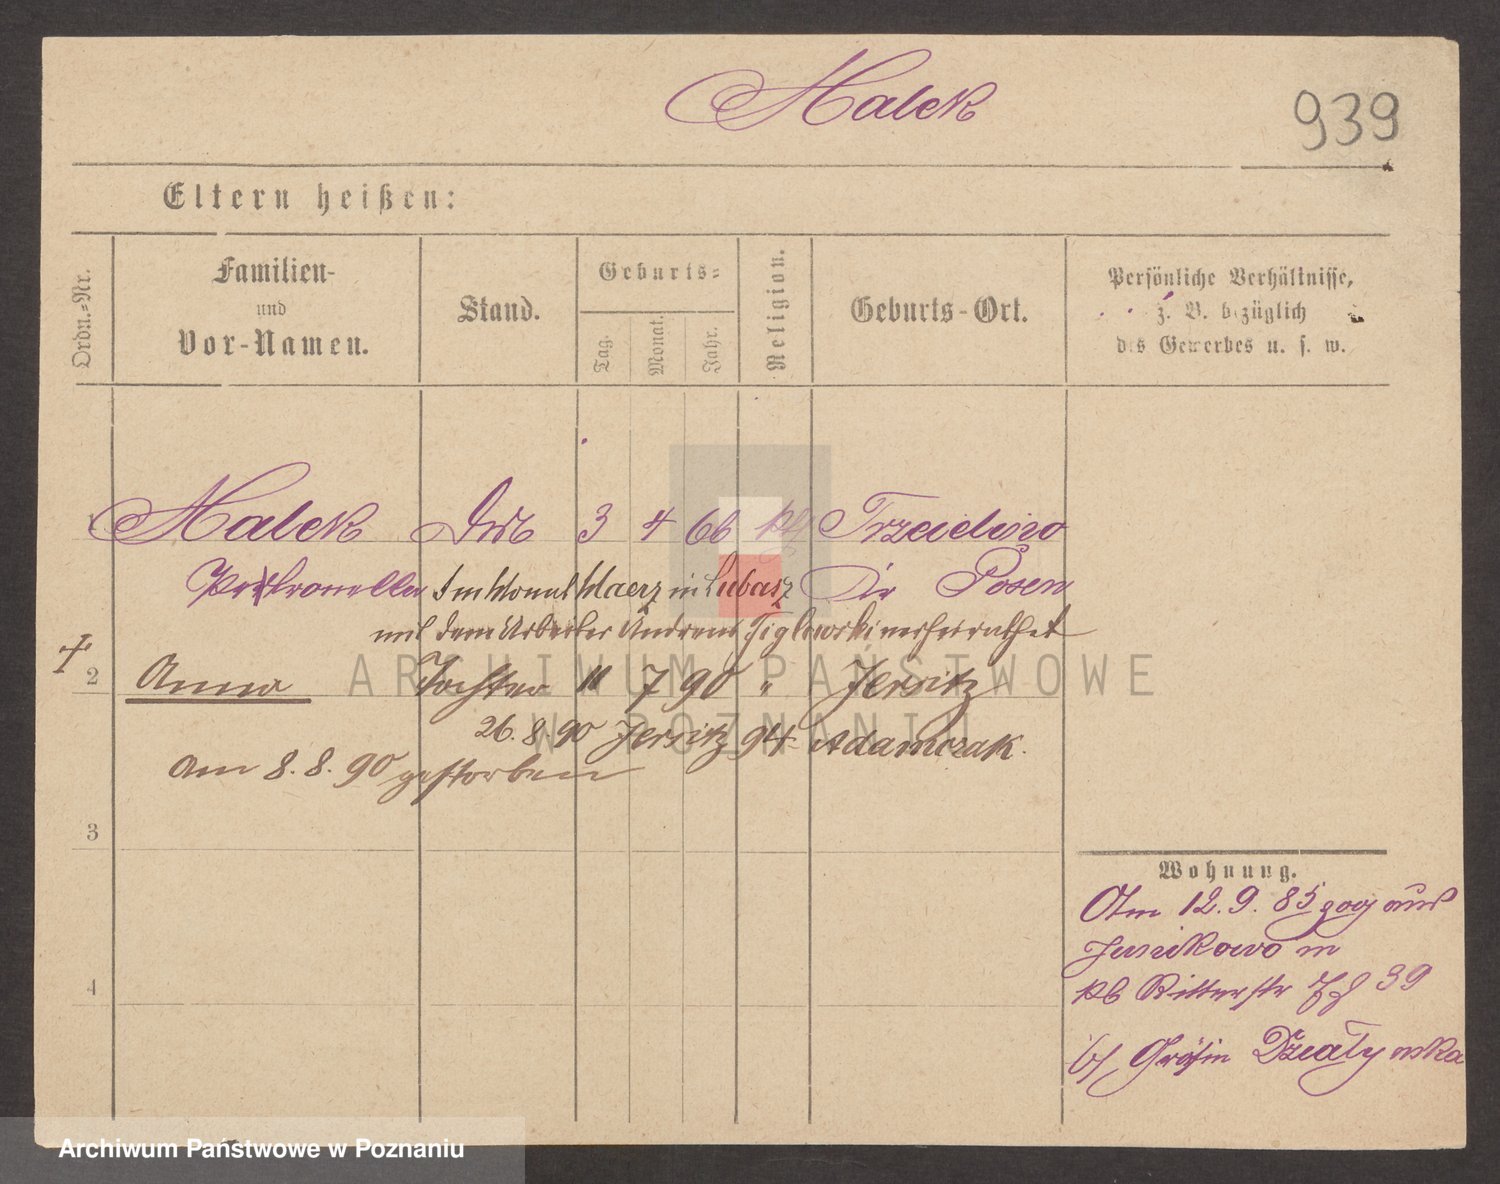 Halek
939
Eltern heißen:
Ordn.-Nr.
Familien-
und
Vor-Namen.
Stand.
Geburts-
Tag.
Monat.
Jahr.
Religion.
Geburts-Ort.
Persönliche Verhältnisse,
z. B. bezüglich
des Gewerbes u. s. w.
1 Halek 3 4 66 kth
Petronella Im Monat Maerz in Lubasz Posen
mit dem Arbeiter Andreas verheirathet
2 Anna Tochter 11 7 90 " Jersitz
26. 8. 90 Jersitz 94 Adamczak.
am 8. 8. 90 gestorben
3
4
Wohnung.
Am 12. 9. 85 zog aus
Junikowo in
Ritterstr 39
b/ Gräfin Działynska
ARCHIWUM PAŃSTWOWE
W POZNANIU
Archiwum Państwowe w Poznaniu